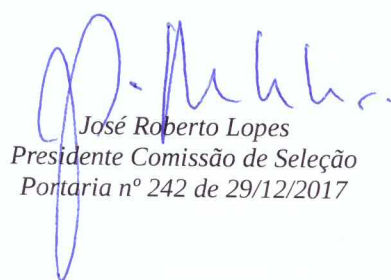 José Roberto Lopes
Presidente Comissão de Seleção
Portaria nº 242 de 29/12/2017